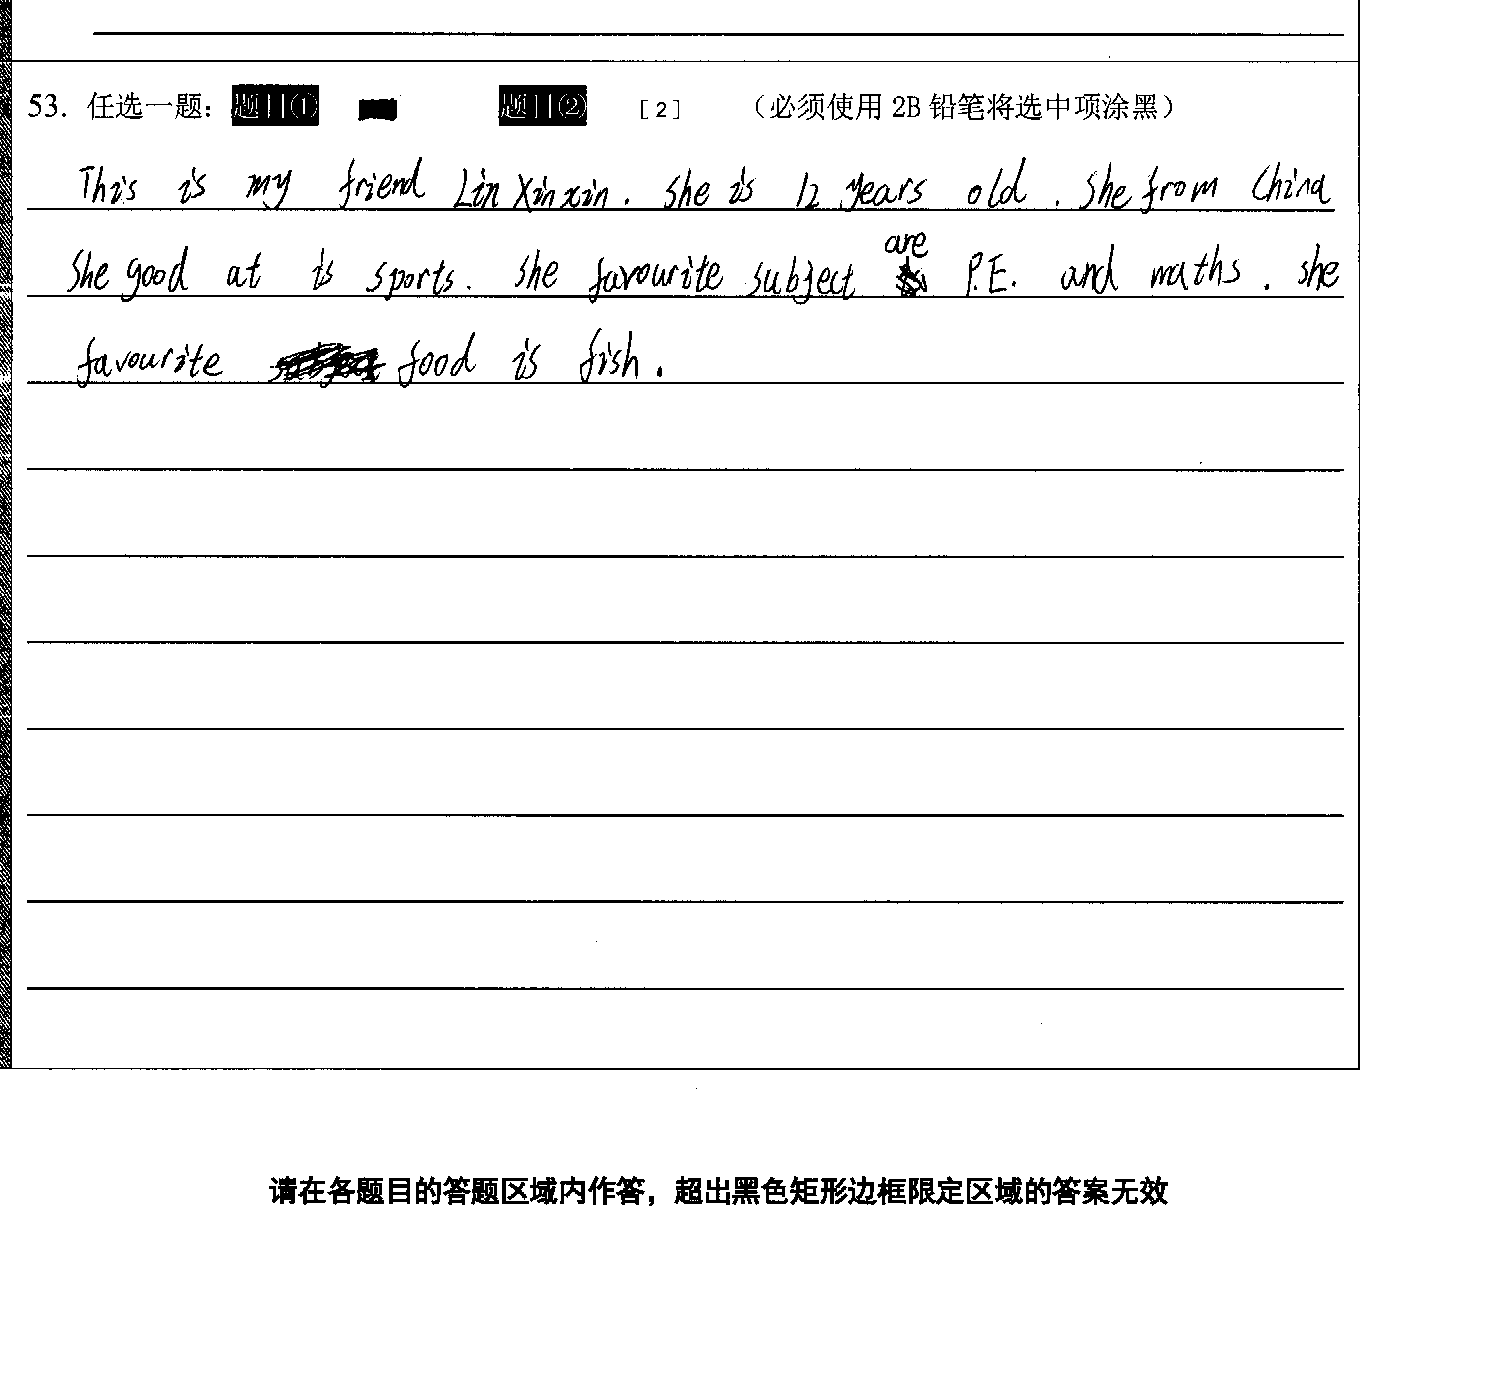 53. 任选一题： 题目① 题目② [2] （必须使用 2B 铅笔将选中项涂黑）
This is my friend Lin Xinxin. She is 12 years old. She from China
She good at is sports. She favourite subject are P.E. and maths. She
favourite food is fish.
请在各题目的答题区域内作答，超出黑色矩形边框限定区域的答案无效